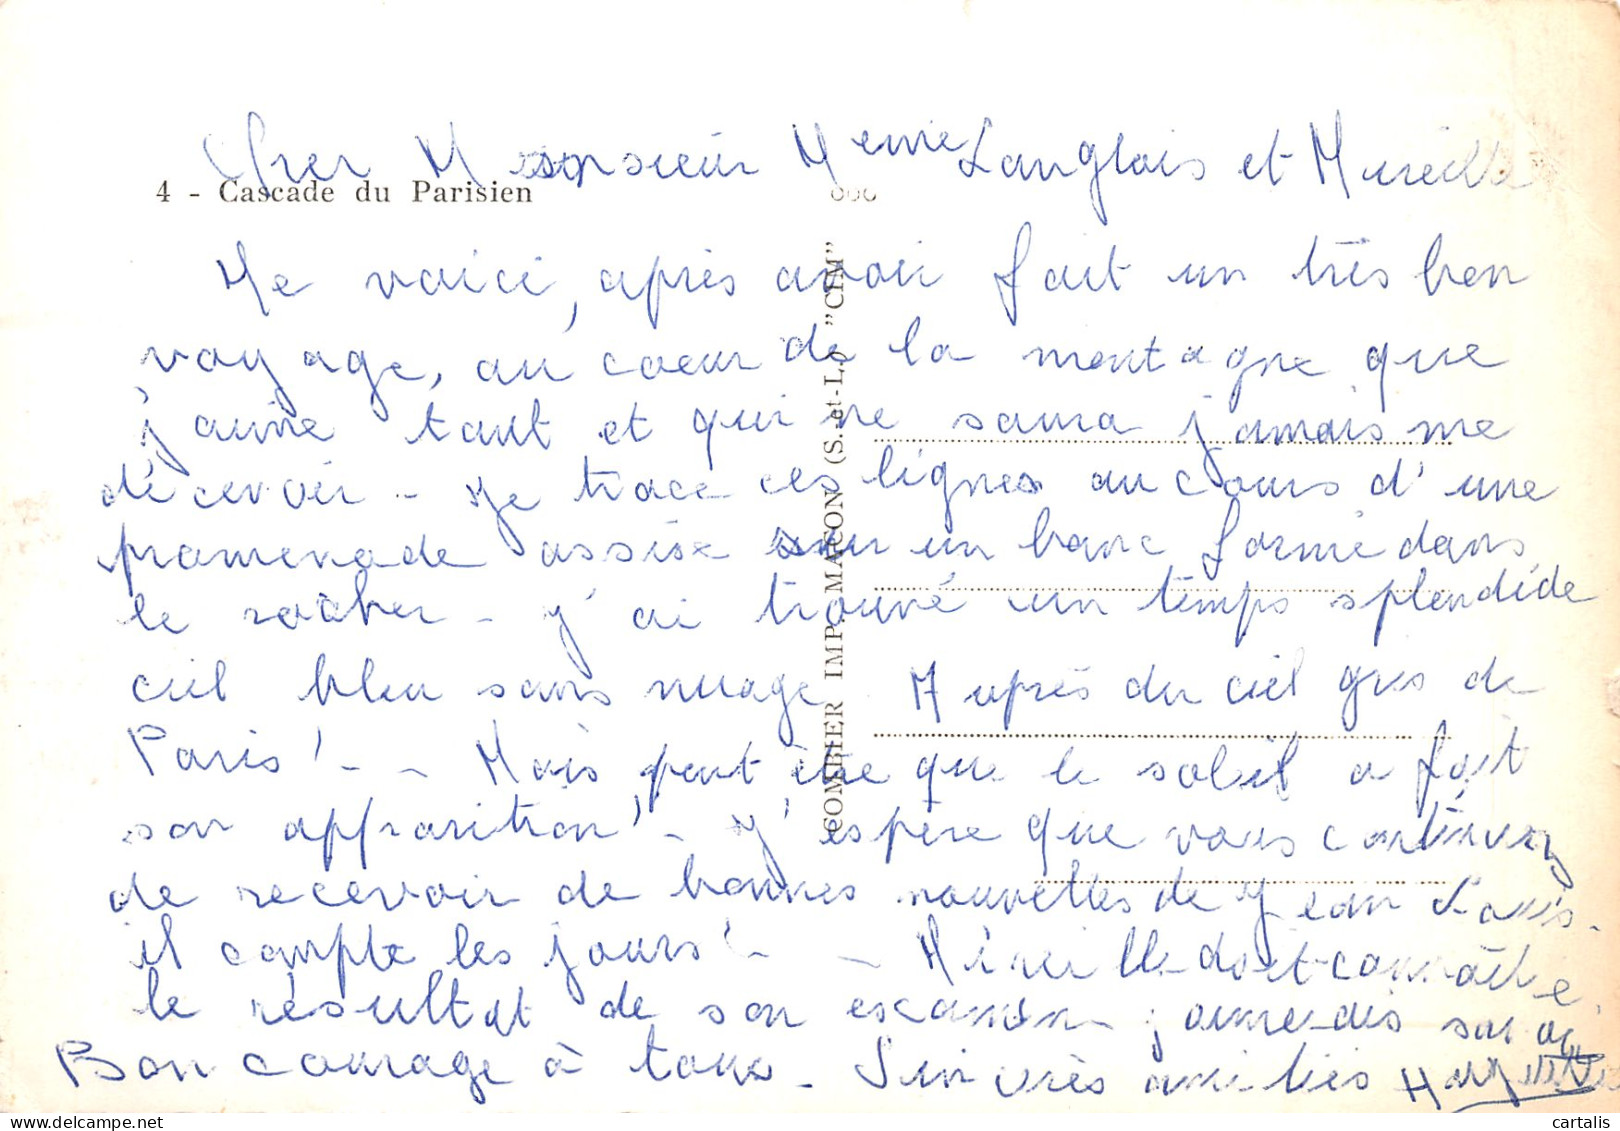 Cher Monsieur Meme Langlais et Mireille
4 - Cascade du Parisien
Me voici, après avoir fait un très bon
voyage, au coeur de la montagne que
j'aime tant et qui ne saura jamais me
décevoir - Je trace ces lignes au cours d'une
promenade assise sur un banc formé dans
le rocher - J'ai trouvé un temps splendide
ciel bleu sans nuage Auprès du ciel gris de
Paris ! - - Mais peut être que le soleil a fait
son apparition ! - J'espère que vous continuez
de recevoir de bonnes nouvelles de Jean Louis -
il compte les jours ! - - Mireille doit connaître
le résultat de son examen
Bon courage à tous - Sincères amitiés
COMBIER IMP. MACON (S.-et-L.) "CIM"
cartalis
delcampe.net